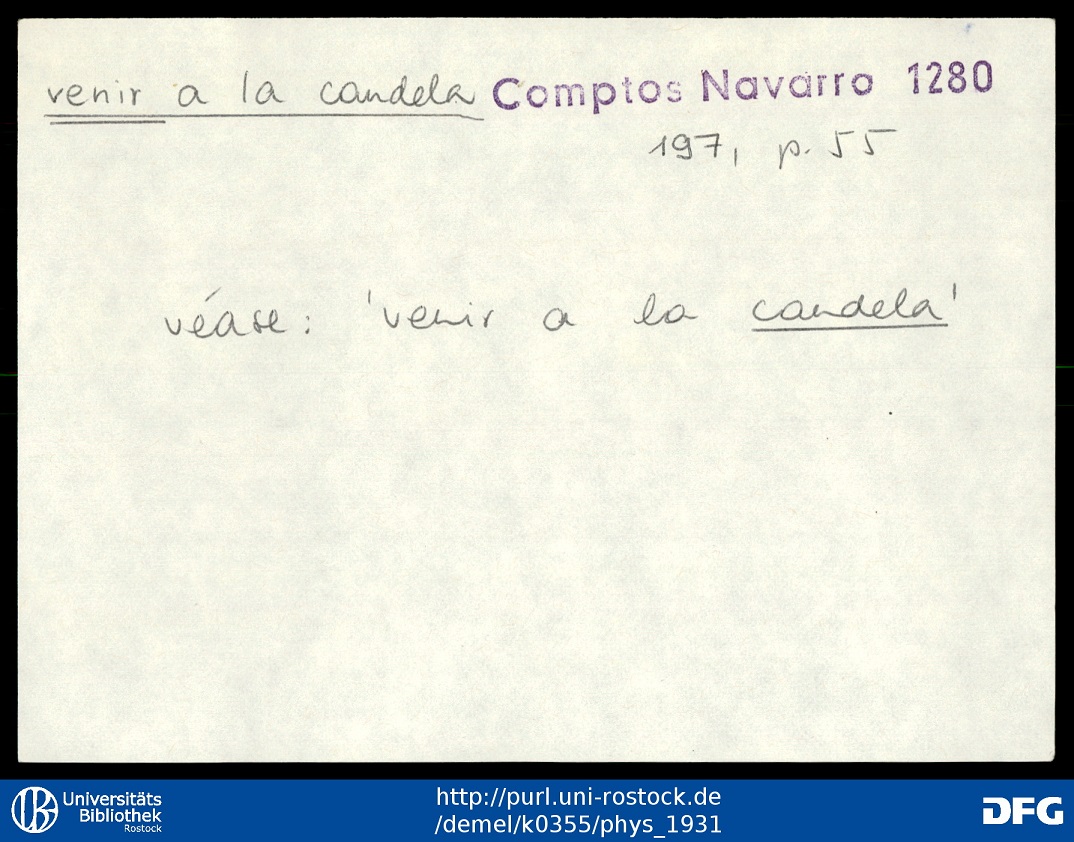 venir a la candela Comptos Navarro 1280
197, p. 55
véase: 'venir a la candela'
Universitäts
Bibliothek
Rostock
http://purl.uni-rostock.de
/demel/k0355/phys_1931
DFG